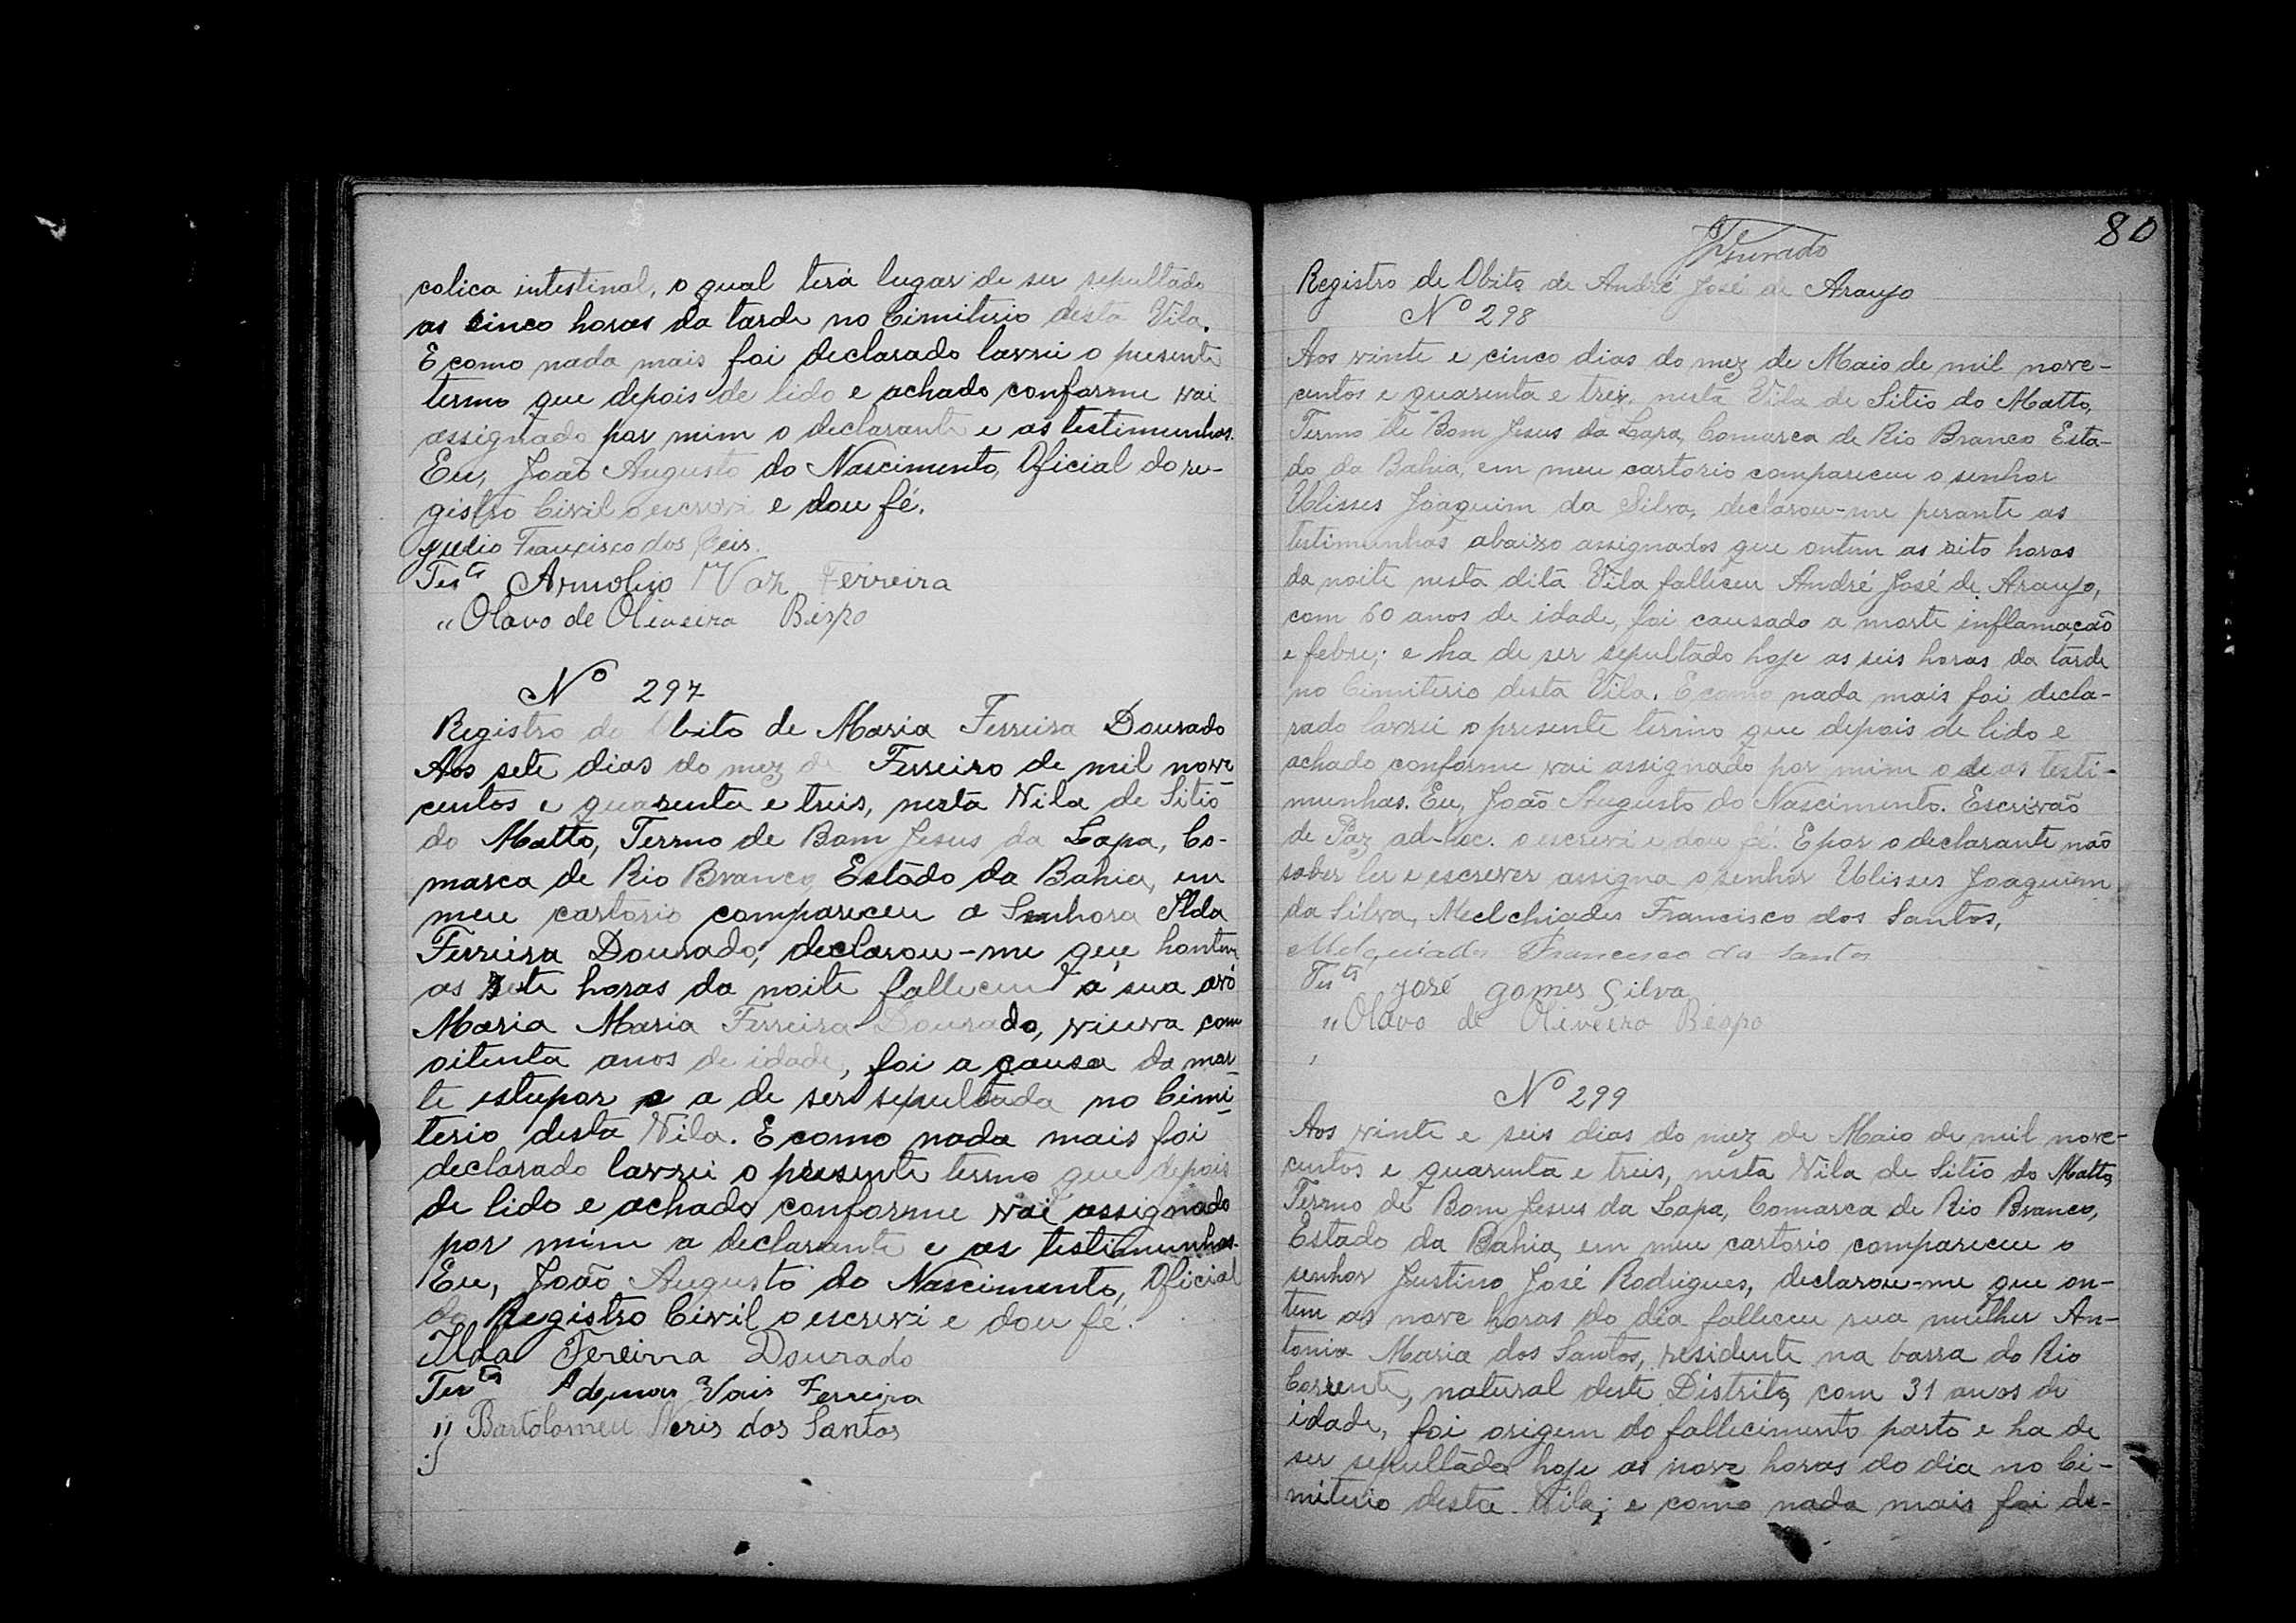 colica intestinal, o qual terá lugar de ser sepultado
as cinco horas da tarde no Cimiterio desta Vila.
E como nada mais foi declarado lavrei o presente
termo que depois de lido e achado conforme vai
assignado por mim o declarante e as testimunhas.
Eu, João Augusto do Nascimento, Oficial do re-
gistro Civil o escrevi e dou fé.
Julio Francisco dos Reis.
Tes^tas Vaz Ferreira
" Olavo de Oliveira Bispo
Nº 297
Registro do Obito de Maria Ferreira Dourado
Aos sete dias do mez de Ferreiro de mil nove
centos e quarenta e treis, nesta Vila de Sitio
do Matto, Termo de Bom Jesus da Lapa, Co-
marca de Rio Branco, Estado da Bahia, em
meu cartorio compareceu a Senhora Ilda
Ferreira Dourado, declarou-me que hontem
as Sete horas da noite falleceu a sua avó
Maria Maria Ferreira Dourado, viuva com
oitenta anos de idade, foi a causa da mor-
te estupor e a de ser sepultada no Cimi-
terio desta Vila. E como nada mais foi
declarado lavrei o presente termo que depois
de lido e achado conforme vai assignado
por mim a declarante e as testimunhas.
Eu, João Augusto do Nascimento, Oficial
do Registro Civil o escrevi e dou fé.
Ilda Fereirra Dourado
Tes^tas Ademar Vais Ferreira
" Bartolomeu Neris dos Santos
80
Registro de Obito de André José de Araujo
Nº 298
Aos vinte e cinco dias do mez de Maio de mil nove-
centos e quarenta e treis, nesta Vila de Sitio do Matto,
Termo de Bom Jesus da Lapa, Comarca de Rio Branco Esta-
do da Bahia, em meu cartorio compareceu o senhor
Ulisses Joaquim da Silva, declarou-me perante as
testimunhas abaixo assignados que ontem as oito horas
da noite nesta dita Vila falleceu André José de Araujo,
com 60 anos de idade, foi causado a morte inflamação
e febre; e ha de ser sepultado hoje as seis horas da tarde
no Cimiterio desta Vila. E como nada mais foi decla-
rado lavrei o presente termo que depois de lido e
achado conforme vai assignado por mim o de as testi-
munhas. Eu, João Augusto do Nascimento. Escrivão
de Paz ad-hoc. o escrevi e dou fé. E por o declarante não
saber ler e escrever assigna o senhor Ulisses Joaquim
da Silva, Melchiades Francisco dos Santos,
Melquiades Francisco dos Santos
Tes^tas José Gomes Silva
" Olavo de Oliveira Bispo
Nº 299
Aos vinte e seis dias do mez de Maio de mil nove-
centos e quarenta e treis, nesta Vila de Sitio do Matto,
Termo de Bom Jesus da Lapa, Comarca de Rio Branco,
Estado da Bahia, em meu cartorio compareceu o
senhor Justino José Rodrigues, declarou-me que on-
tem as nove horas do dia falleceu sua mulher An-
tonia Maria dos Santos, residente na barra do Rio
Corrente, natural deste Distrito, com 31 anos de
idade, foi origem do fallecimento parto e ha de
ser sepultada hoje as nove horas do dia no Ci-
miterio desta Vila; e como nada mais foi de-